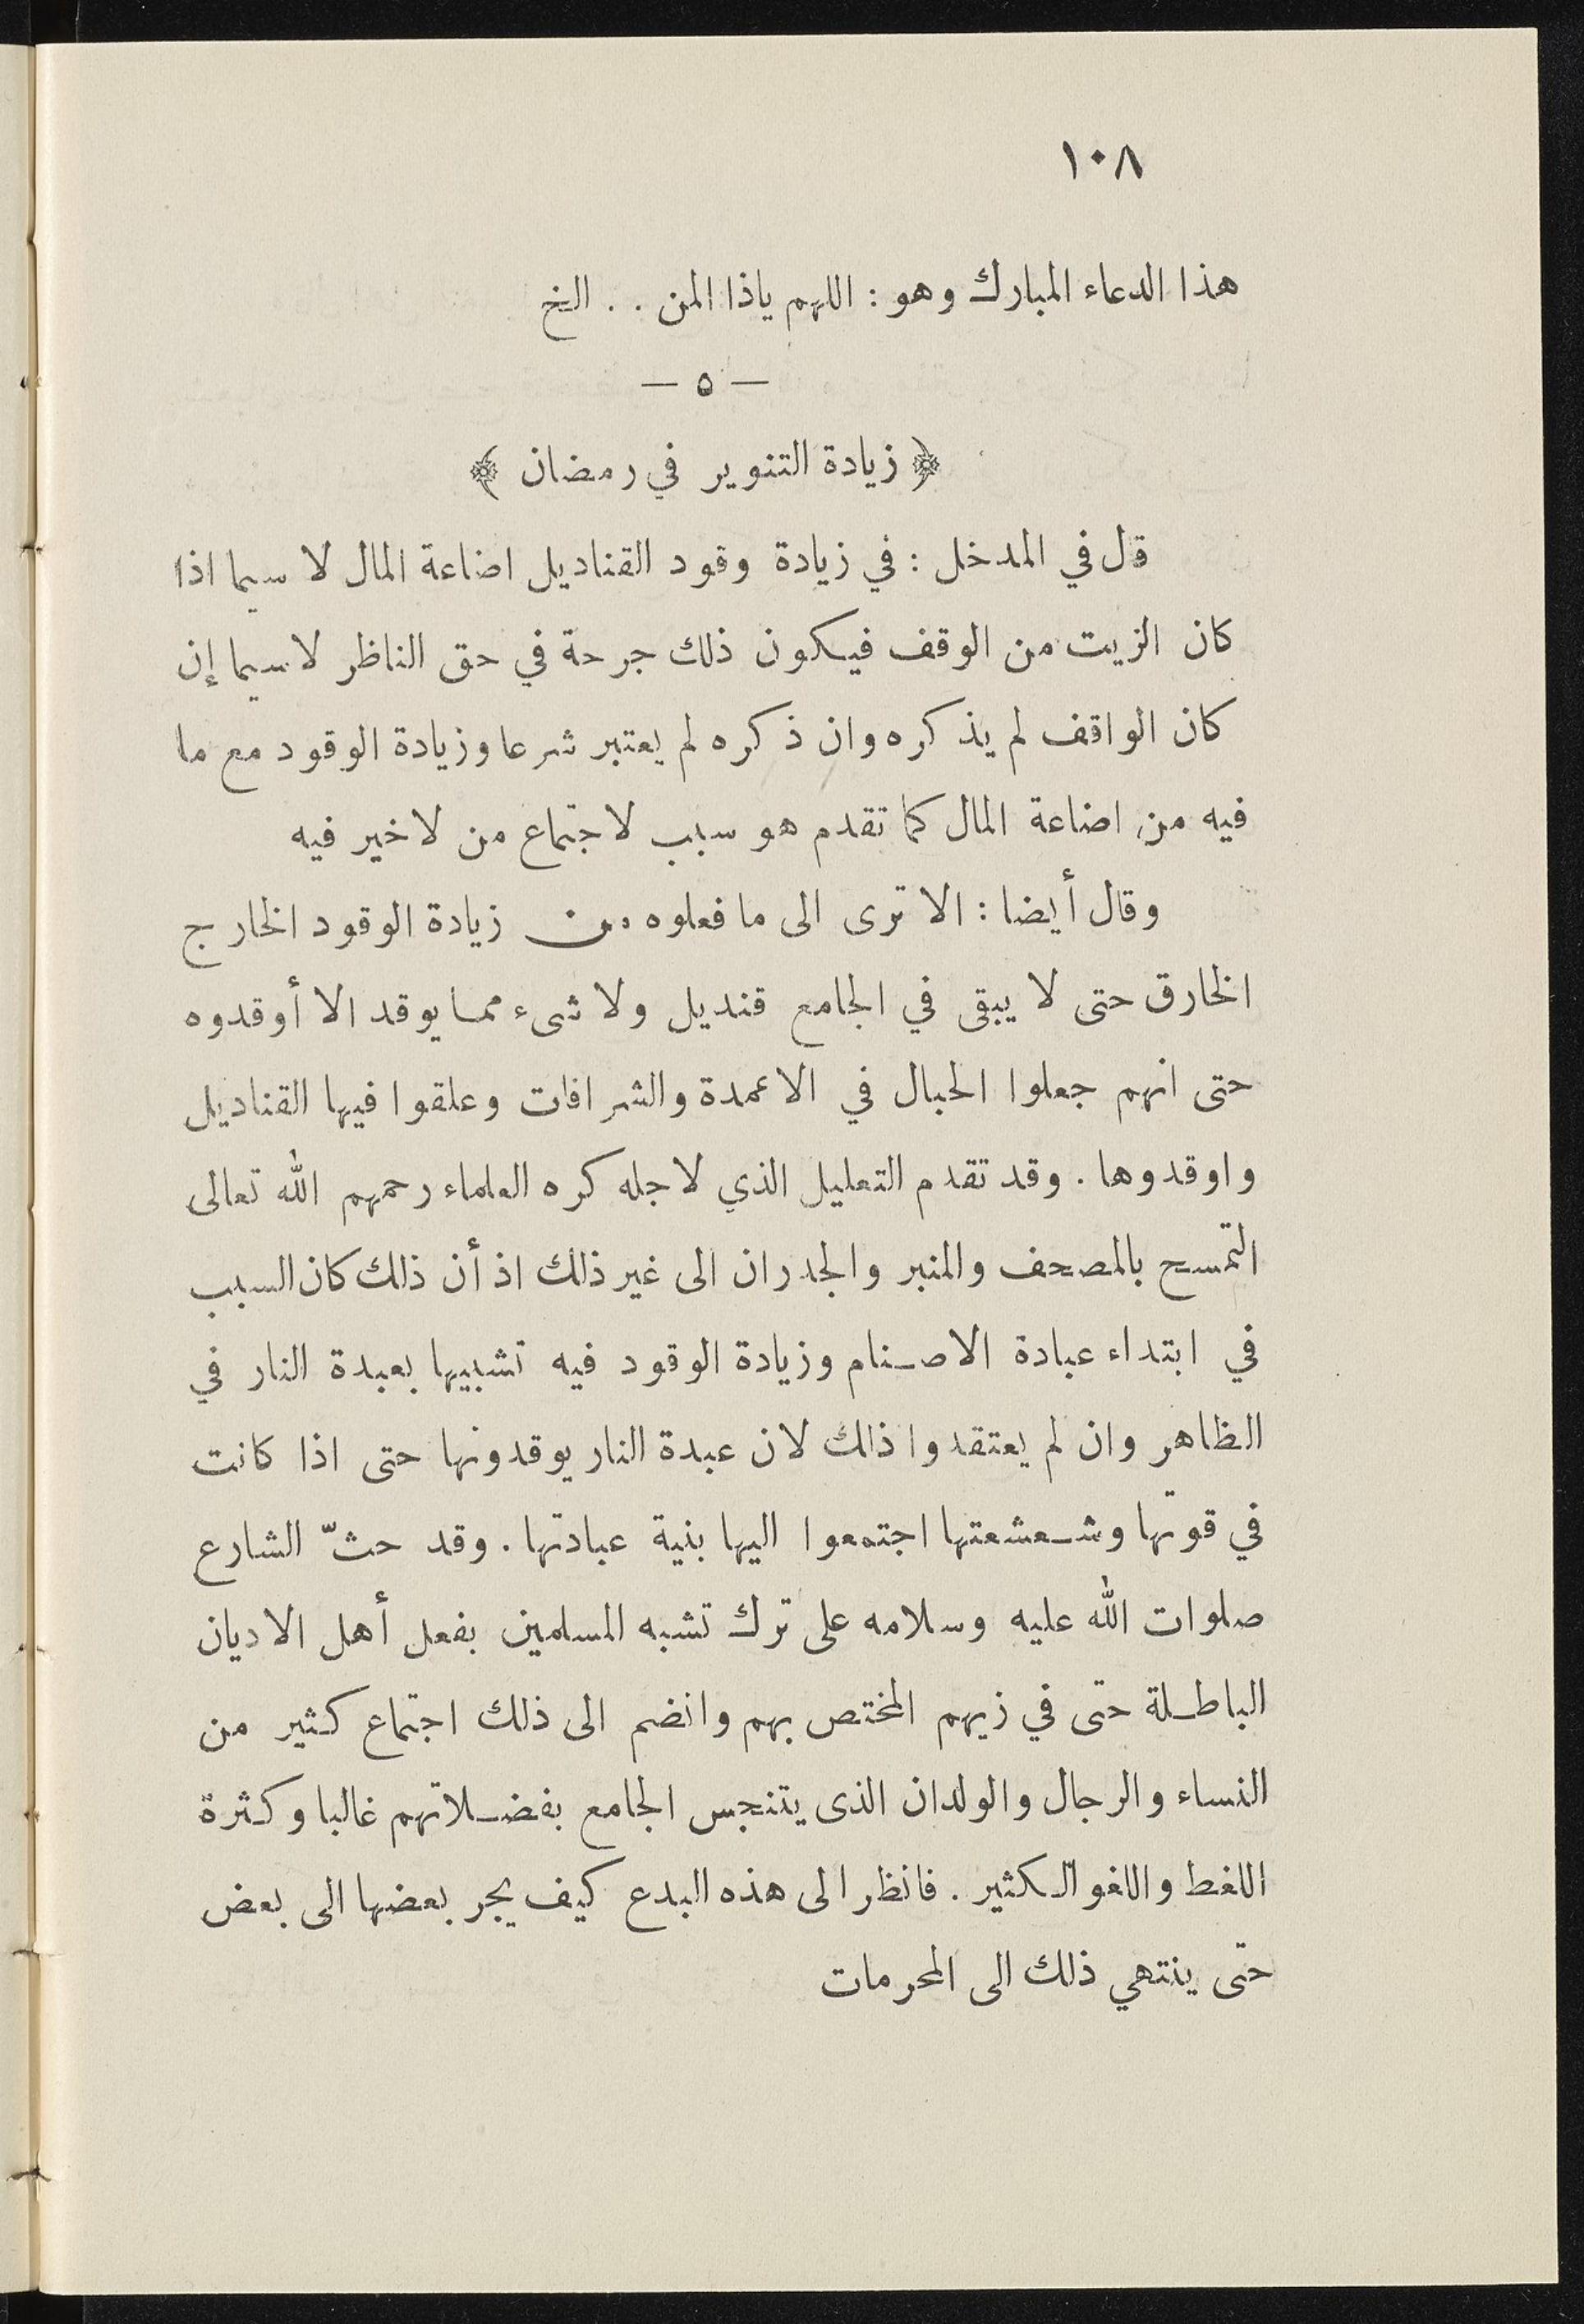 ١٠٨
هذا الدعاء المبارك وهو : اللهم ياذا المن . . الخ
— ٥ —
﴿ زيادة التنوير في رمضان ﴾
قل في المدخل : في زيادة وقود القناديل اضاعة المال لا سيما اذا
كان الزيت من الوقف فيكون ذلك جرحة في حق الناظر لا سيما إن
كان الواقف لم يذكره وان ذكره لم يعتبر شرعا وزيادة الوقود مع ما
فيه من اضاعة المال كما تقدم هو سبب لاجتماع من لا خير فيه
وقال أيضا : الا ترى الى ما فعلوه من زيادة الوقود الخارج
الخارق حتى لا يبقى في الجامع قنديل ولا شىء مما يوقد الا أوقدوه
حتى انهم جعلوا الحبال في الاعمدة والشرافات وعلقوا فيها القناديل
واوقدوها . وقد تقدم التعليل الذي لاجله كره العلماء رحمهم الله تعالى
التمسح بالمصحف والمنبر والجدران الى غير ذلك اذ أن ذلك كان السبب
في ابتداء عبادة الاصنام وزيادة الوقود فيه تشبيها بعبدة النار في
الظاهر وان لم يعتقدوا ذلك لان عبدة النار يوقدونها حتى اذا كانت
في قوتها وشعشعتها اجتمعوا اليها بنية عبادتها . وقد حثّ الشارع
صلوات الله عليه وسلامه على ترك تشبه المسلمين بفعل أهل الاديان
الباطلة حتى في زيهم المختص بهم وانضم الى ذلك اجتماع كثير من
النساء والرجال والولدان الذى يتنجس الجامع بفضلاتهم غالبا وكثرة
اللغط واللغو الكثير . فانظر الى هذه البدع كيف يجر بعضها الى بعض
حتى ينتهي ذلك الى المحرمات